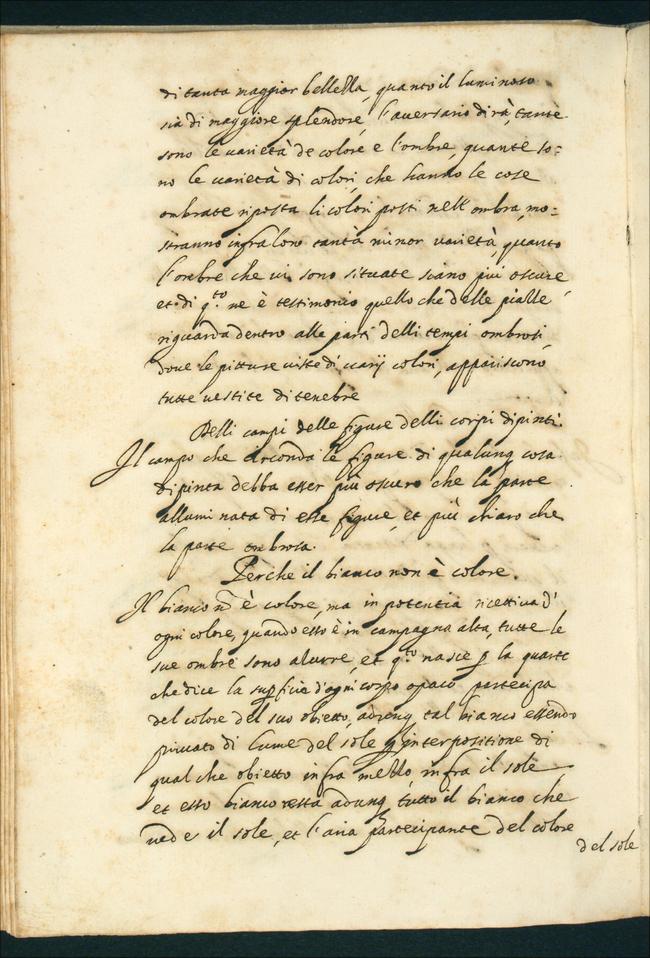 di tanta maggior bellezza, quanto il luminoso
sia di maggiore splendore, l'aversario dirà, tante
sono le varietà de colore e l'ombre, quante so=
no le varietà di colori, che hanno le cose
ombrate risposta li colori posti nell'ombra, mo=
stranno infra loro tanta minor varietà quanto
l'ombre che vi sono situate siano più oscure
et di q.to ne è testimonio quello che delle piazze
riguarda dentro alle parti delli tempi ombrosi,
dove le pitture viste di varij colori, appariscono
tutte vestite di tenebre
Delli campi delle figure delli corpi dipinti.
Il campo che circonda le figure di qualunq cosa
dipinta debba esser più oscuro che la parte
alluminata di esse figure, et più chiaro che
la parte ombrosa.
Perche il bianco non è colore.
Il bianco nō è colore, ma in potentia ricettiva d'
ogni colore, quando esso è in campagna alta, tutte le
sue ombre sono azurre, et q.to nasce p la quarta
che dice la supficie d'ogni corpo opaco partecipa
del colore del suo obietto, adunq tal bianco essendo
privato di lume del sole p interpositione di
qual che obietto infra mezzo, infra il sole
et esso bianco resta adunq tutto il bianco che
vede il sole, et l'aria partecipante del colore
del sole